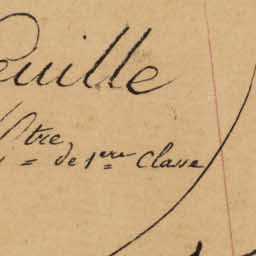 euille
tre
de 1ere Classe